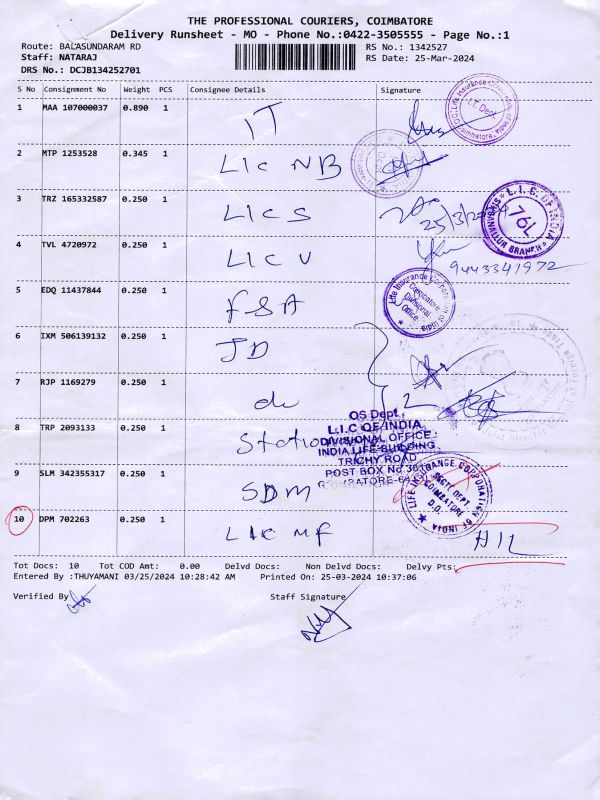 THE PROFESSIONAL COURIERS, COIMBATORE
Delivery Runsheet - MO - Phone No.:0422-3505555 - Page No.:1
Route: BALASUNDARAM RD RS No.: 1342527
Staff: NATARAJ RS Date: 25-Mar-2024
DRS No.: DCJB134252701
S No Consignment No Weight PCS Consignee Details Signature
1 MAA 107000037 0.890 1 IT
I.T Dept.
2 MTP 1253528 0.345 1 LIC NB
3 TRZ 165332587 0.250 1 LIC S
25/3/2024
L.I.C. OF INDIA
76L
BRANCH
4 TVL 4720972 0.250 1 LIC V
9443341972
5 EDQ 11437844 0.250 1 FSA
Life Insurance Corporation of India
Coimbatore
Divisional
Office
6 IXM 506139132 0.250 1 JD
7 RJP 1169279 0.250 1 do
OS Dept.
L.I.C OF INDIA
8 TRP 2093133 0.250 1
DIVISIONAL OFFICE
INDIA LIFE BUILDING
TRICHY ROAD
POST BOX No
9 SLM 342355317 0.250 1 SDM
LIFE INSURANCE CORPORATION OF INDIA
DEPT
COIMBATORE
D.O.
10 DPM 702263 0.250 1 LIC MF
Tot Docs: 10 Tot COD Amt: 0.00 Delvd Docs: Non Delvd Docs: Delvy Pts:
Entered By :THUYAMANI 03/25/2024 10:28:42 AM Printed On: 25-03-2024 10:37:06
Verified By Staff Signature